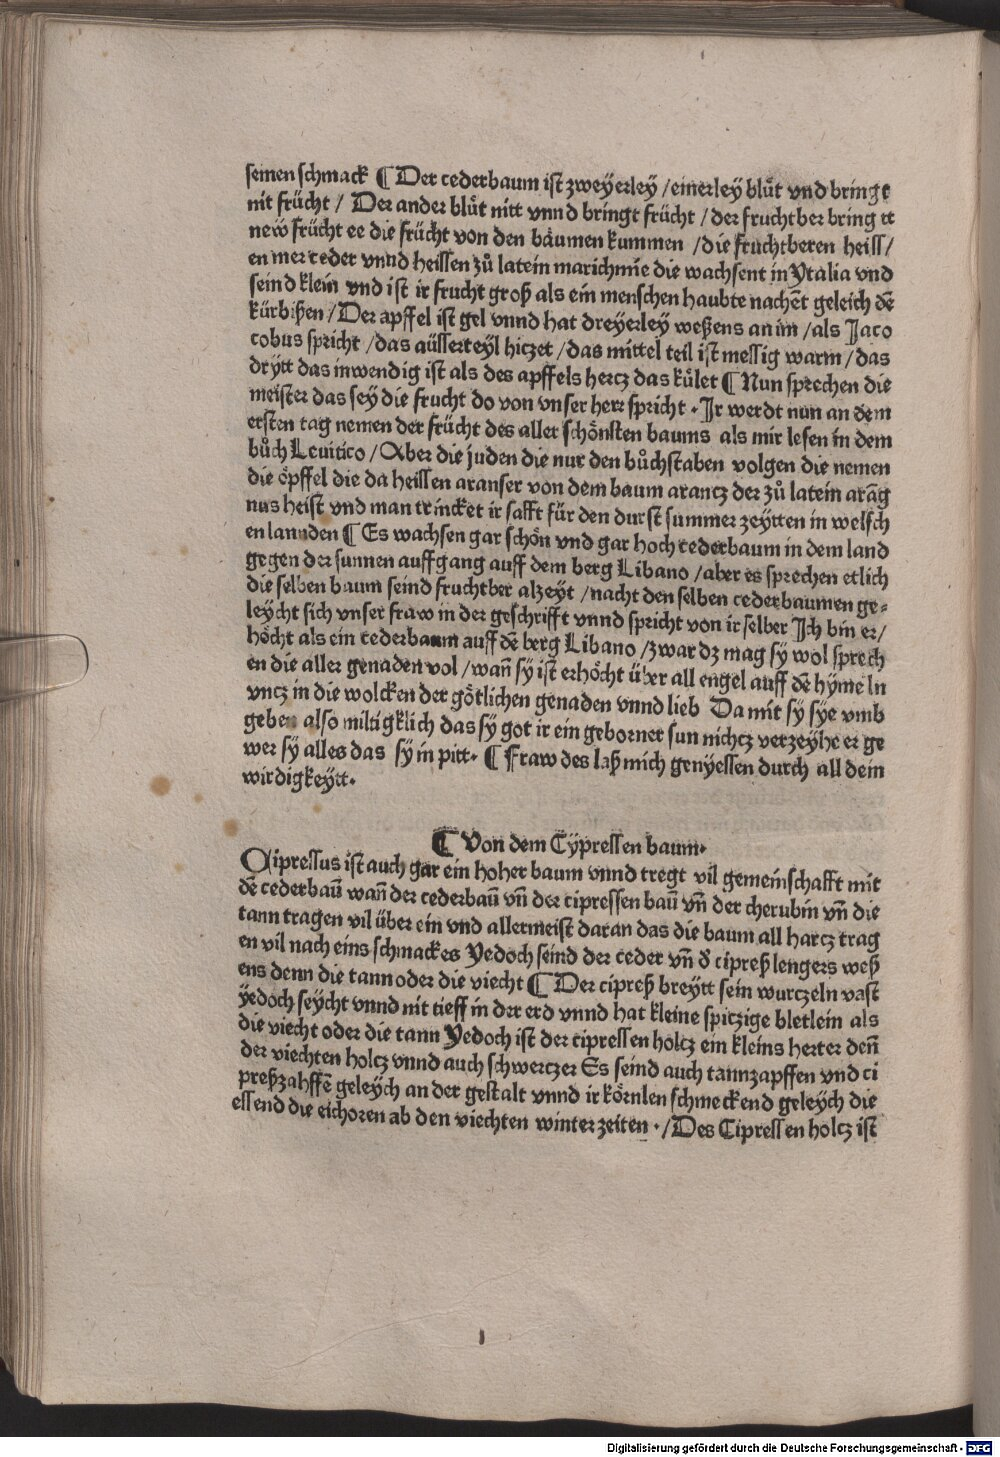 seinen schmack ¶ Der cederbaum ist zweyerley /einerley blüt vnd bringt
nit frücht / Der ander blüt nitt vnnd bringt frücht /der fruchtber bring tt
neẅ frücht ee die frücht von den bäumen kummen /die fruchtberen heiss/
en mer ceder vnnd heissen zů latein marichmie die wachsent in Ytalia vnd
seind klein vnd ist ir frucht groß als ein menschen haubte nachēt geleich dē
kürbißen /Der apffel ist gel vnnd hat dreyerley weßens an im /als Jaco
cobus spricht /das aüsserteyl hiczet /das mittel teil ist messig warm /das
drytt das inwendig ist als des apffels hercz das kůlet ¶ Nun sprechen die
meister das sey die frucht do von vnser herr spricht · Ir werdt nun an dem
ersten tag nemen der frücht des aller schönsten baums als mir lesen in dem
bůch Leuitico /Aber die juden die nur den bůchstaben volgen die nemen
die öpffel die da heissen aranser von dem baum arancz der zů latein arāg
nus heist vnd man trincket ir safft für den durst summer zeytten in welsch
en lannden ¶ Es wachsen gar schön vnd gar hoch cederbaum in dem land
gegen der sunnen auffgang auff dem berg Libano /aber es sprechen etlich
die selben baum seind fruchtber alzeyt /nacht den selben cederbaumen ge⸗
leycht sich vnser fraw in der geschrifft vnnd spricht von ir selber Ich bin er/
höcht als ein cederbaum auff dē berg Libano /zwar dz mag sy wol sprech
en die aller genaden vol /wañ sy ist erhöcht über all engel auff dē hymeln
vncz in die wolcken der götlichen genaden vnnd lieb Da mit sy sye vmb
geben also miltigklich das sy got ir ein geborner sun nichcz verzeyhe er ge
wer sy alles das sy in pitt · ¶ Fraw des laß mich genyessen durch all dein
wirdigkeytt ·
¶ Von dem Cypressen baum·
Cipressus ist auch gar ein hoher baum vnnd tregt vil gemeinschafft mit
dē cederbaū wañ der cederbaū vñ der cipressen baū vñ der cherubin vñ die
tann tragen vil über ein vnd allermeist daran das die baum all harcz trag
en vil nach eins schmackes Yedoch seind der ceder vñ d cipreß lengers weß
ens denn die tann oder die viecht ¶ Der cipreß breytt sein wurczeln vast
yedoch seycht vnnd nit tieff in der erd vnnd hat kleine spiczige bletlein als
die viecht oder die tann Yedoch ist der cipressen holcz ein kleins herter deñ
der viechten holcz vnnd auch schwerczer Es seind auch tannzapffen vnd ci
preßzahffē geleych an der gestalt vnnd ir körnlen schmeckend geleych die
essend die eichoren ab den viechten winterzeiten · /Des Cipressen holcz ist
Digitalisierung gefördert durch die Deutsche Forschungsgemeinschaft - DFG